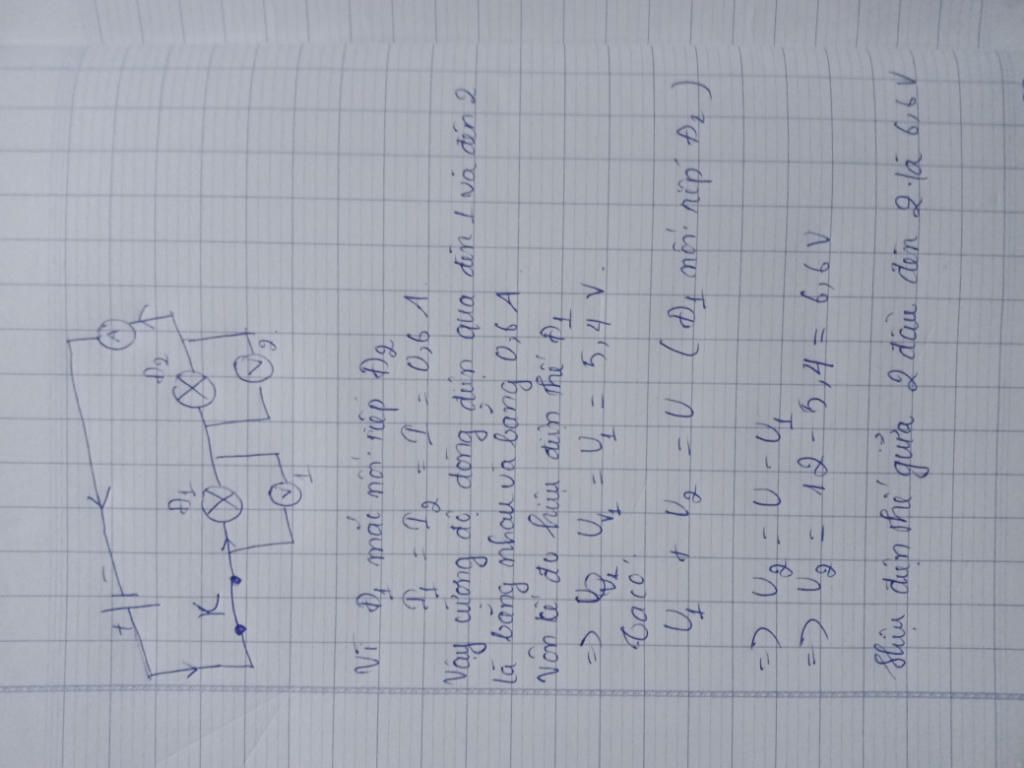 + -
K
Đ1
Đ2
A
V1
V2
Vì Đ1 mắc nối tiếp Đ2
I1 = I2 = I = 0,6 A
Vậy cường độ dòng điện qua đèn 1 và đèn 2
là bằng nhau và bằng 0,6 A
Vôn kế đo hiệu điện thế Đ1
=> UV1 = U1 = 5,4 V.
Ta có:
U1 + U2 = U (Đ1 nối tiếp Đ2)
=> U2 = U - U1
=> U2 = 12 - 5,4 = 6,6 V
Hiệu điện thế giữa 2 đầu đèn 2 là 6,6 V